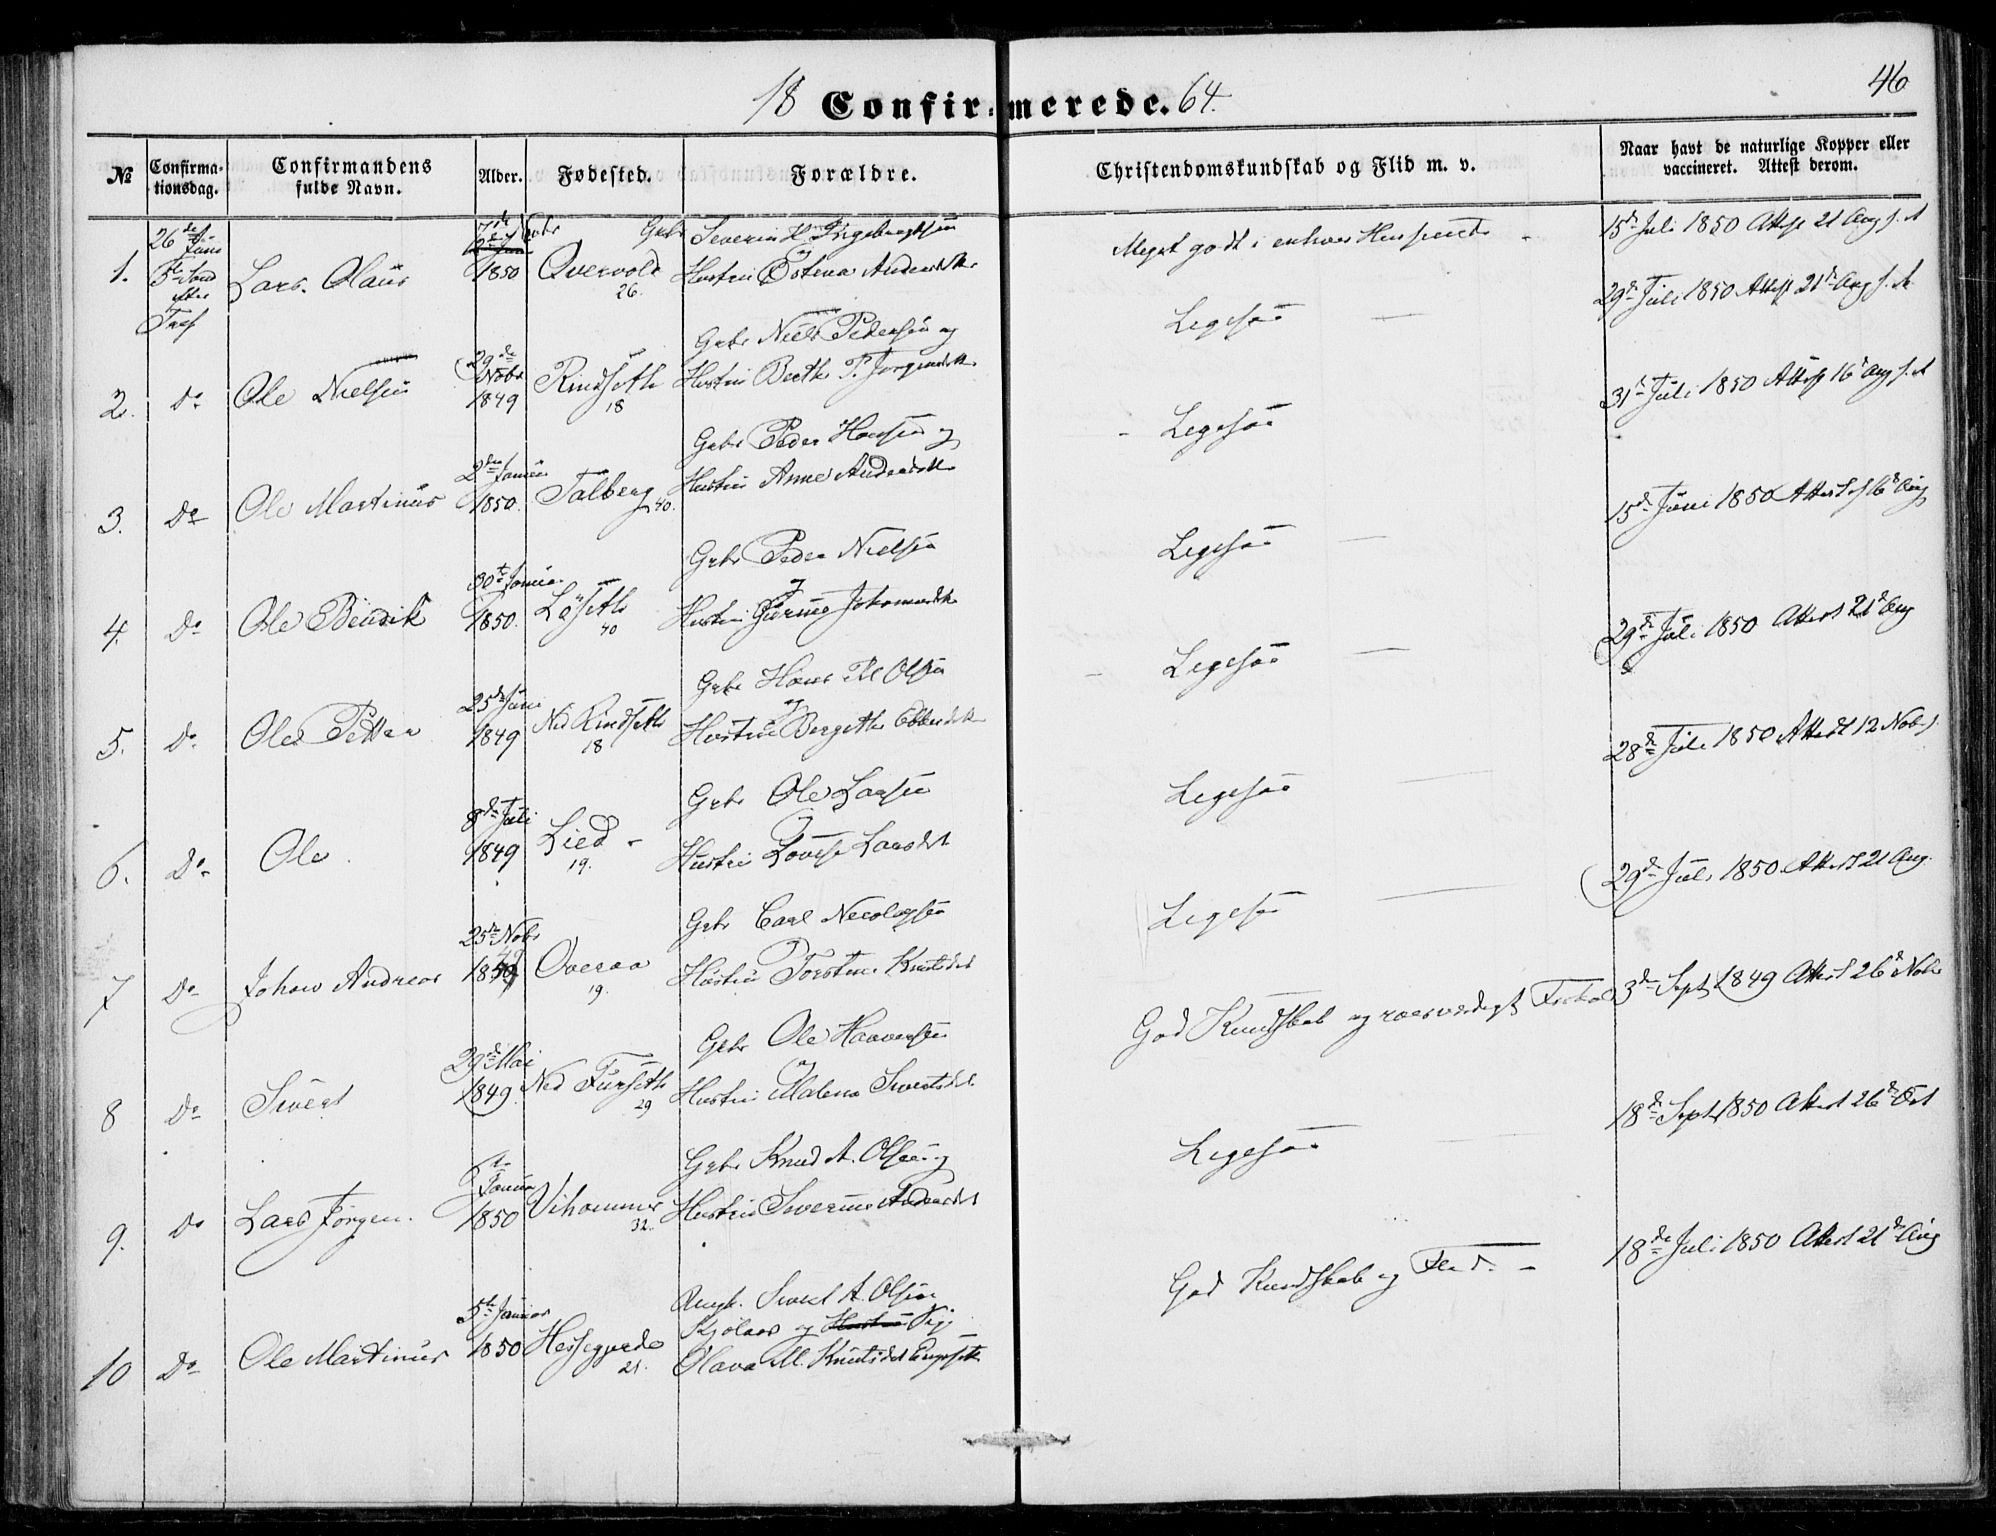 18 Confirmerede. 64.
46
No
Confirma-
tionsdag.
Confirmandens
fulde Navn.
Alder.
Fødested.
Forældre.
Christendomskundskab og Flid m. v.
Naar havt de naturlige Kopper eller
vaccineret. Attest derom.
26de Juni
5te Sønd
efter
Tref
1.
Lars Olaus
1850
Overvold
26.
Gbr Severin H Ingebregtsen
og
Hustru Østena Andersdtr
Meget godt i enhver Henseende
15de Juli 1850 Attest 21 Aug s. A
2.
Do
Ole Nielsen
29de
Novbr
1849
Rindseth
18
Gbr Niels Pedersen og
Hustru Berthe P. Jørgensdtr
Ligesaa
29de Juli 1850 Attest 21de Aug s. A.
3.
Do
Ole Martinus
2den Januar
1850.
Talberg
40.
Gbr Peder Hansen og
Hustru Anne Andersdtr
Ligesaa
31de Juli 1850 Attest 16de Aug s. A
4.
Do
Ole Bendik
30te Januar
1850.
Løseth
40
Gbr Peder Nielsen
og
Hustru Johannesdtr
Ligesaa
15de Juni 1850 Attest 16de Aug
5.
Do
Ole Petter
25de Juni
1849
Ned Rindseth
18
Gbr Hans Olsen
og
Hustru Bergethe
Ligesaa
29de Juli 1850 Attest 21de Aug
6.
Do
Ole
8de Juli
1849
Lied
19.
Gbr Ole Larsen
og
Hustru Lovise Larsdt
Ligesaa
28de Juli 1850 Attest 12 Nobr
7
Do
Johan Andreas
25de Nobr
49
1850
Overaa
19.
Gbr Carl Nicolaysen
og
Hustru Torstine Knutsdt
Ligesaa
29de Juli 1850 Attest 21 Aug.
8
Do
Sivert
29de Mai
1849
Ned Furseth
29
Gbr Ole Haavensen
og
Hustru Malena Sivertsdt
God Kundskab og roesværdigt Forhold
3de Sept 1849 Attest 26de Nobr
9.
Do
Lars Jørgen.
6te
Januar
1850
Vihammer
32.
Gbr Knud A. Olsen og
Hustru Severine Andersdt
Ligesaa
18de Sept 1850 Attest 26de Oct
10
Do
Ole Martinus
5te Januar
1850
Hessegjerde
21.
Ungk. Sivert A. Olsen
og Hustru Pige
Olava M. Knutsdt
God Kundskab og Flid.
18de Juli 1850 Attest 21de Aug